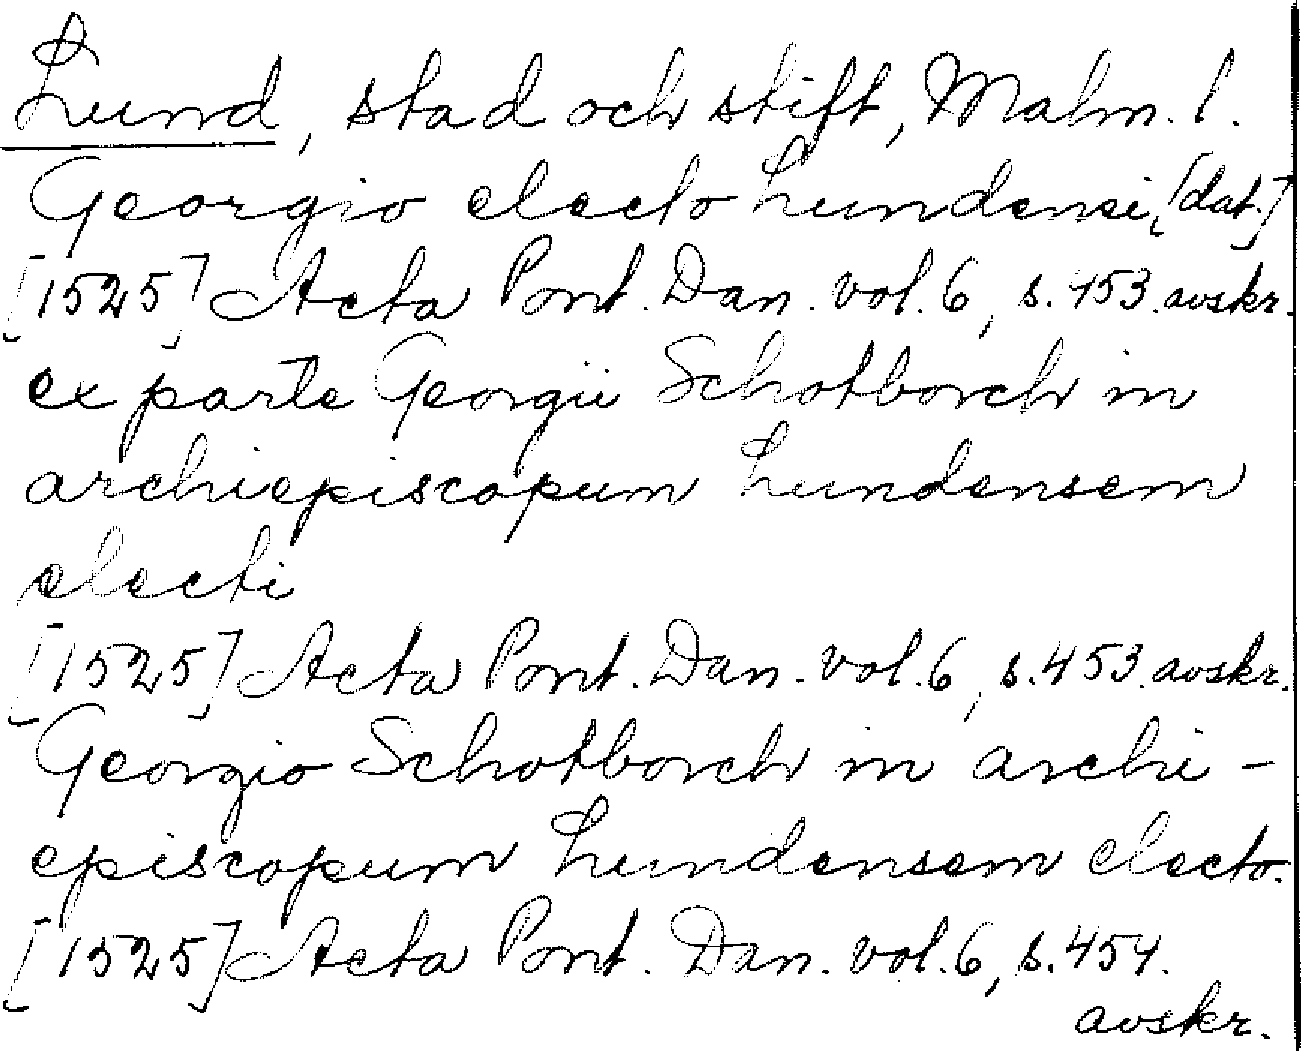 Lund, stad och stift, Malm. l.
Georgio electo Lundensi, [dat.]
[1525] Acta Pont. Dan. vol. 6, s. 453. avskr.
ex parte Georgii Schotborch in
archiepiscopum Lundensem
electi
[1525] Acta Pont. Dan. vol. 6, s. 453. avskr.
Georgio Schotborch in archi-
episcopum Lundensem electo.
[1525] Acta Pont. Dan. vol. 6, s. 454.
avskr.